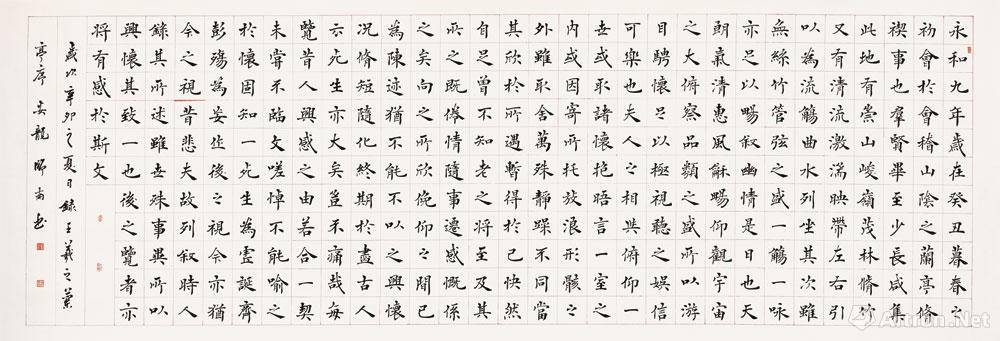 永和九年歲在癸丑暮春之
初會於會稽山陰之蘭亭脩
禊事也群賢畢至少長咸集
此地有崇山峻嶺茂林脩竹
又有清流激湍映帶左右引
以為流觴曲水列坐其次雖
無絲竹管弦之盛一觴一詠
亦足以暢叙幽情是日也天
朗氣清惠風龢暢仰觀宇宙
之大俯察品類之盛所以游
目騁懷足以極視聽之娛信
可樂也夫人之相與俯仰一
世或取諸懷抱晤言一室之
内或因寄所托放浪形骸之
外雖取舍萬殊靜躁不同當
其欣於所遇暫得於己快然
自足曾不知老之將至及其
所之既倦情隨事遷感慨係
之矣向之所欣俛仰之間已
為陳迹猶不能不以之興懷
况脩短隨化終期於盡古人
云死生亦大矣豈不痛哉每
覽昔人興感之由若合一契
未嘗不臨文嗟悼不能喻之
於懷固知一死生為虛誕齊
彭殤為妄作後之視今亦猶
今之視昔悲夫故列叙時人
錄其所述雖世殊事異所以
興懷其致一也後之覽者亦
將有感於斯文
歲次辛卯之夏日錄王羲之蘭
亭序 龍 書
Artron.Net